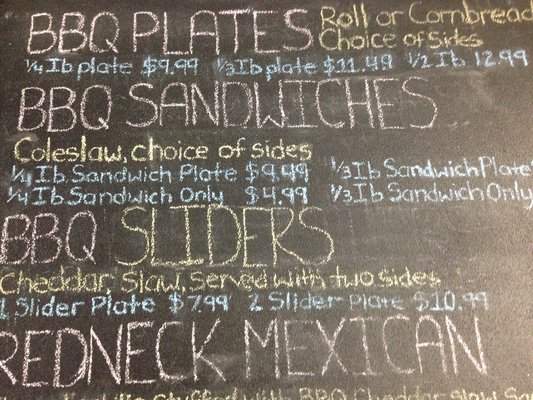 BBQ PLATES Roll or Cornbread
Choice of Sides
1/4 lb plate $9.99 1/3 lb plate $11.49 1/2 lb 12.99
BBQ SANDWICHES
Coleslaw, choice of sides
1/4 lb Sandwich Plate $9.49 1/3 lb Sandwich Plate
1/4 lb Sandwich Only $4.99 1/3 lb Sandwich Only
BBQ SLIDERS
Cheddar, Slaw, Served with two sides
1 Slider Plate $7.99 2 Slider Plate $10.99
REDNECK MEXICAN
Stuffed with BBQ Cheddar Slaw